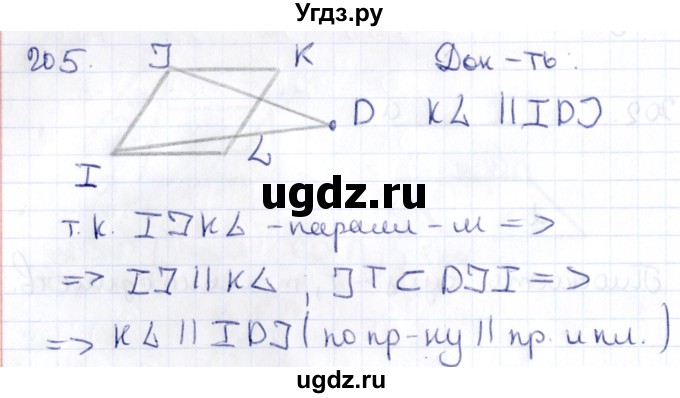 Угдз.ру
205.
J K
Док-ть:
D
KL || IDJ
L
I
ugdz.ru
т.к. IJKL - паралл-м =>
=> IJ || KL, JI ⊂ DJI =>
=> KL || IDJ (по пр-ку || пр. и пл.)
ugdz.ru